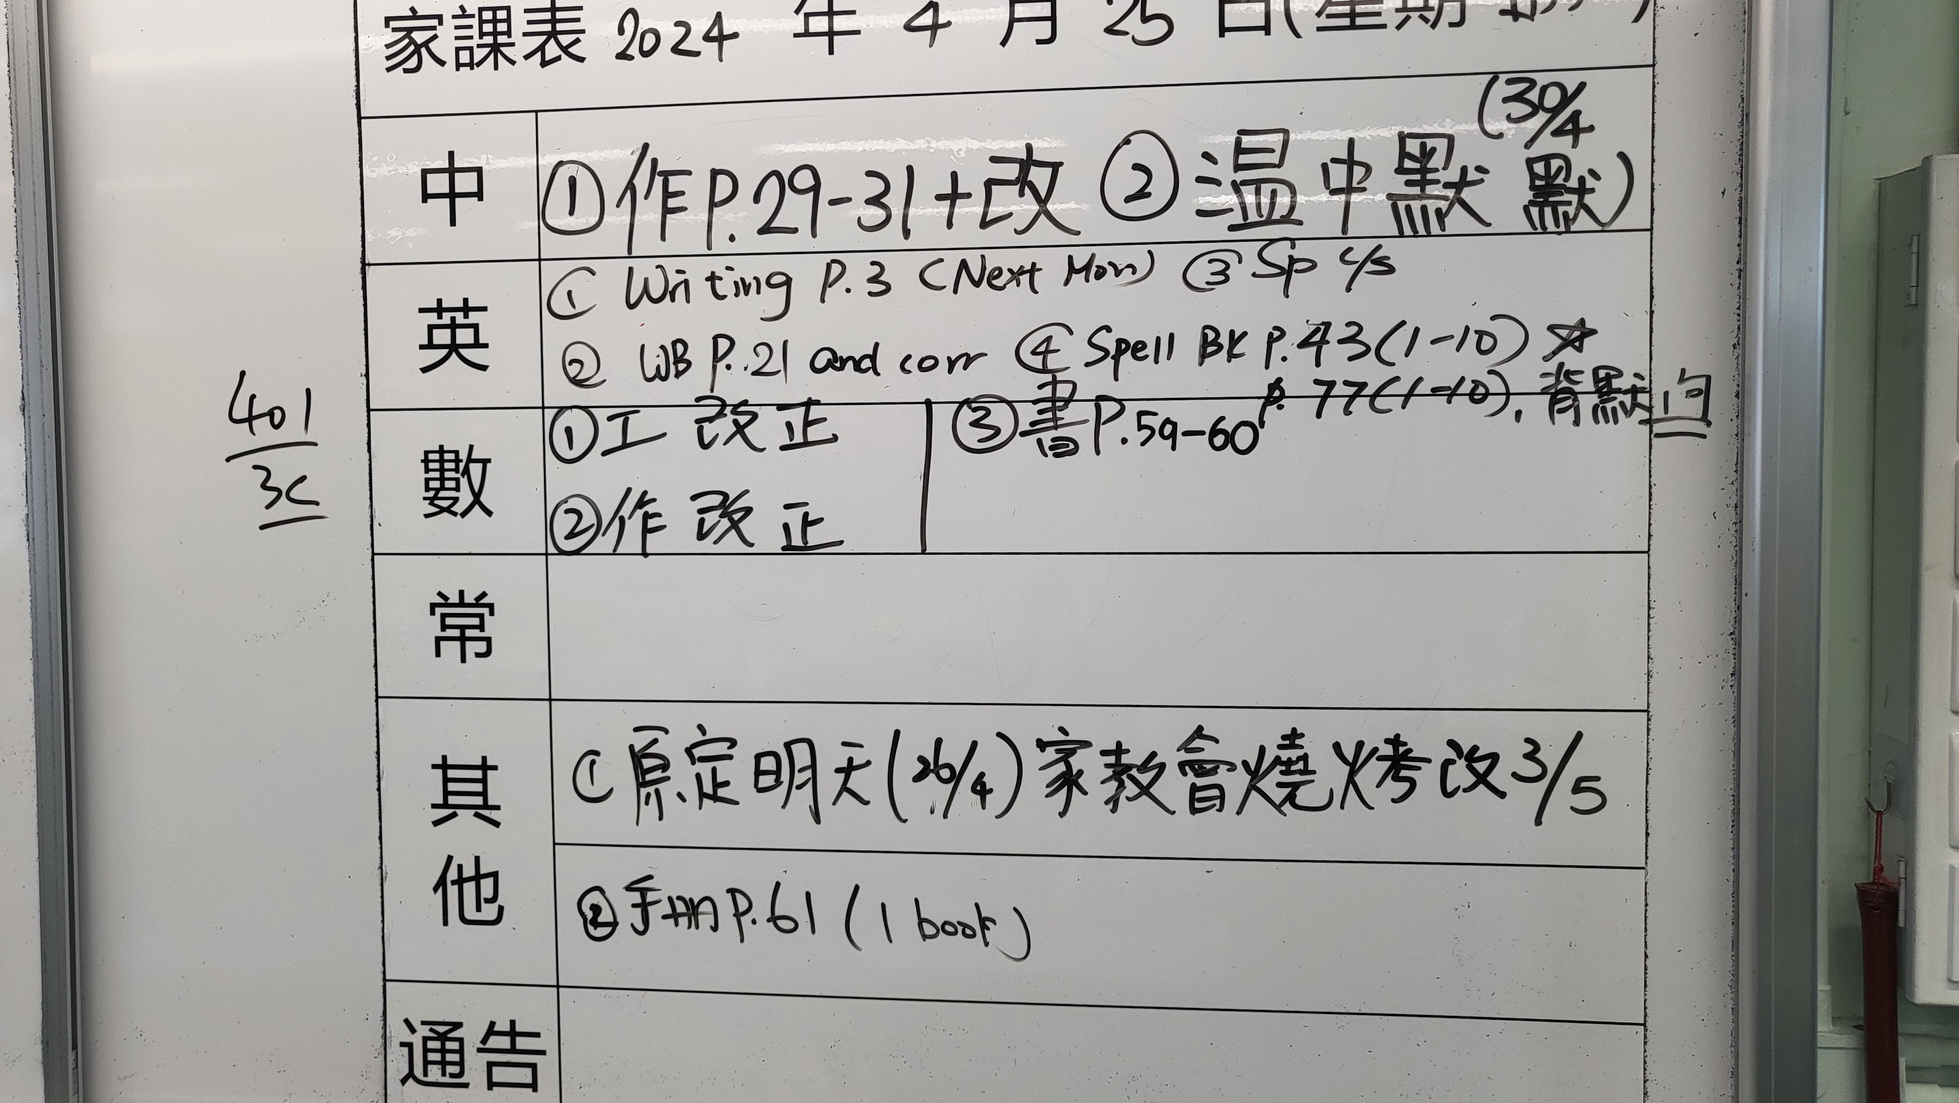 家課表 2024 年 4 月 25 日(星期
401
3C
中
(30/4
①作P.29-31+改 ②温中默 默)
英
① Writing P.3 (Next Mon) ③ Sp c/s
② WB P.21 and corr ④ Spell BK P.43(1-10) ☆
P.77(1-10), 背默句
數
①工 改正 ③書P.59-60
②作 改正
常
其他
①原定明天(26/4)家教會燒烤改3/5
②手册P.61 (1 book)
通告